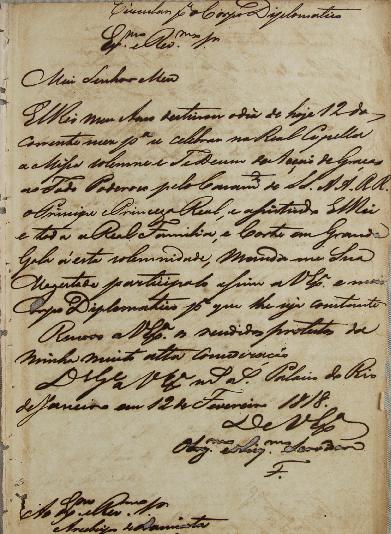 Circular pª o Corpo Diplomatico
Exmo e Revmo Sr
Meu Senhor Meu
ElRei meu Amo destinou o dia de hoje 12 do
corrente mez pª se celebrar na Real Capella
a Missa solemne e Te Deum de Acção de Graças
ao Todo Poderoso pelo Casamto de SS. A.A. R.R.
o Principe e Princeza Real, e assistindo ElRei
e toda a Real Familia, e Corte em Grande
Gala a esta solemnidade, Manda-me Sua
Magestade participalo assim a VExª e mais
Corpo Diplomatico pª que lhe seja constante
Renovo a VExª os rendidos protestos da
minha muito alta consideração
Ds Ge a VExª ms as Palacio do Rio
de Janeiro em 12 de Fevereiro 1818.
De VExª
Obrgmo e Servidor
F.
Ao Exmo e Revmo Sr
Arcebispo de Damiata